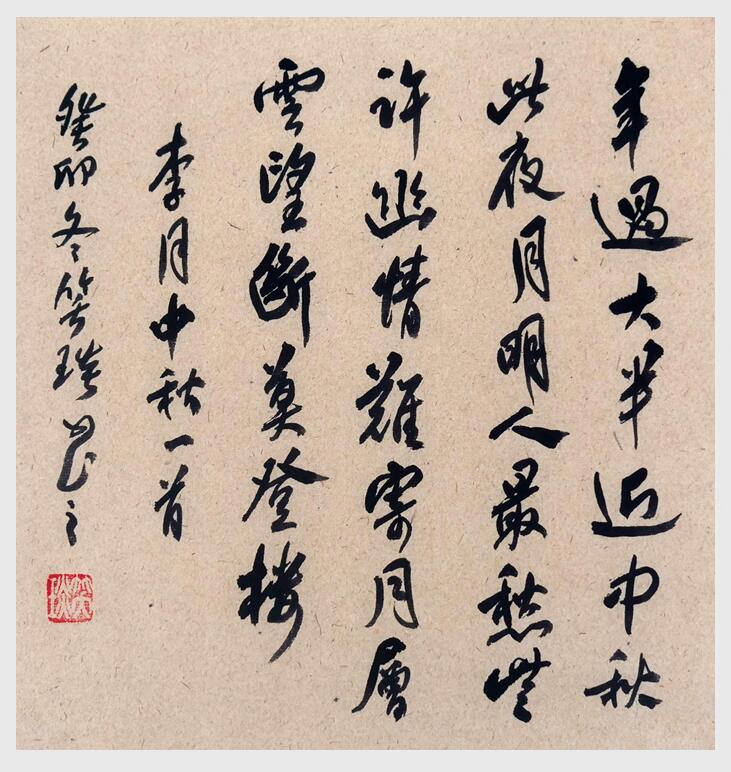 年過大半近中秋
此夜月明人最愁些
許幽情難寄月層
雲望斷莫登樓
李月中秋一首
癸卯冬笑琰书之
笑琰